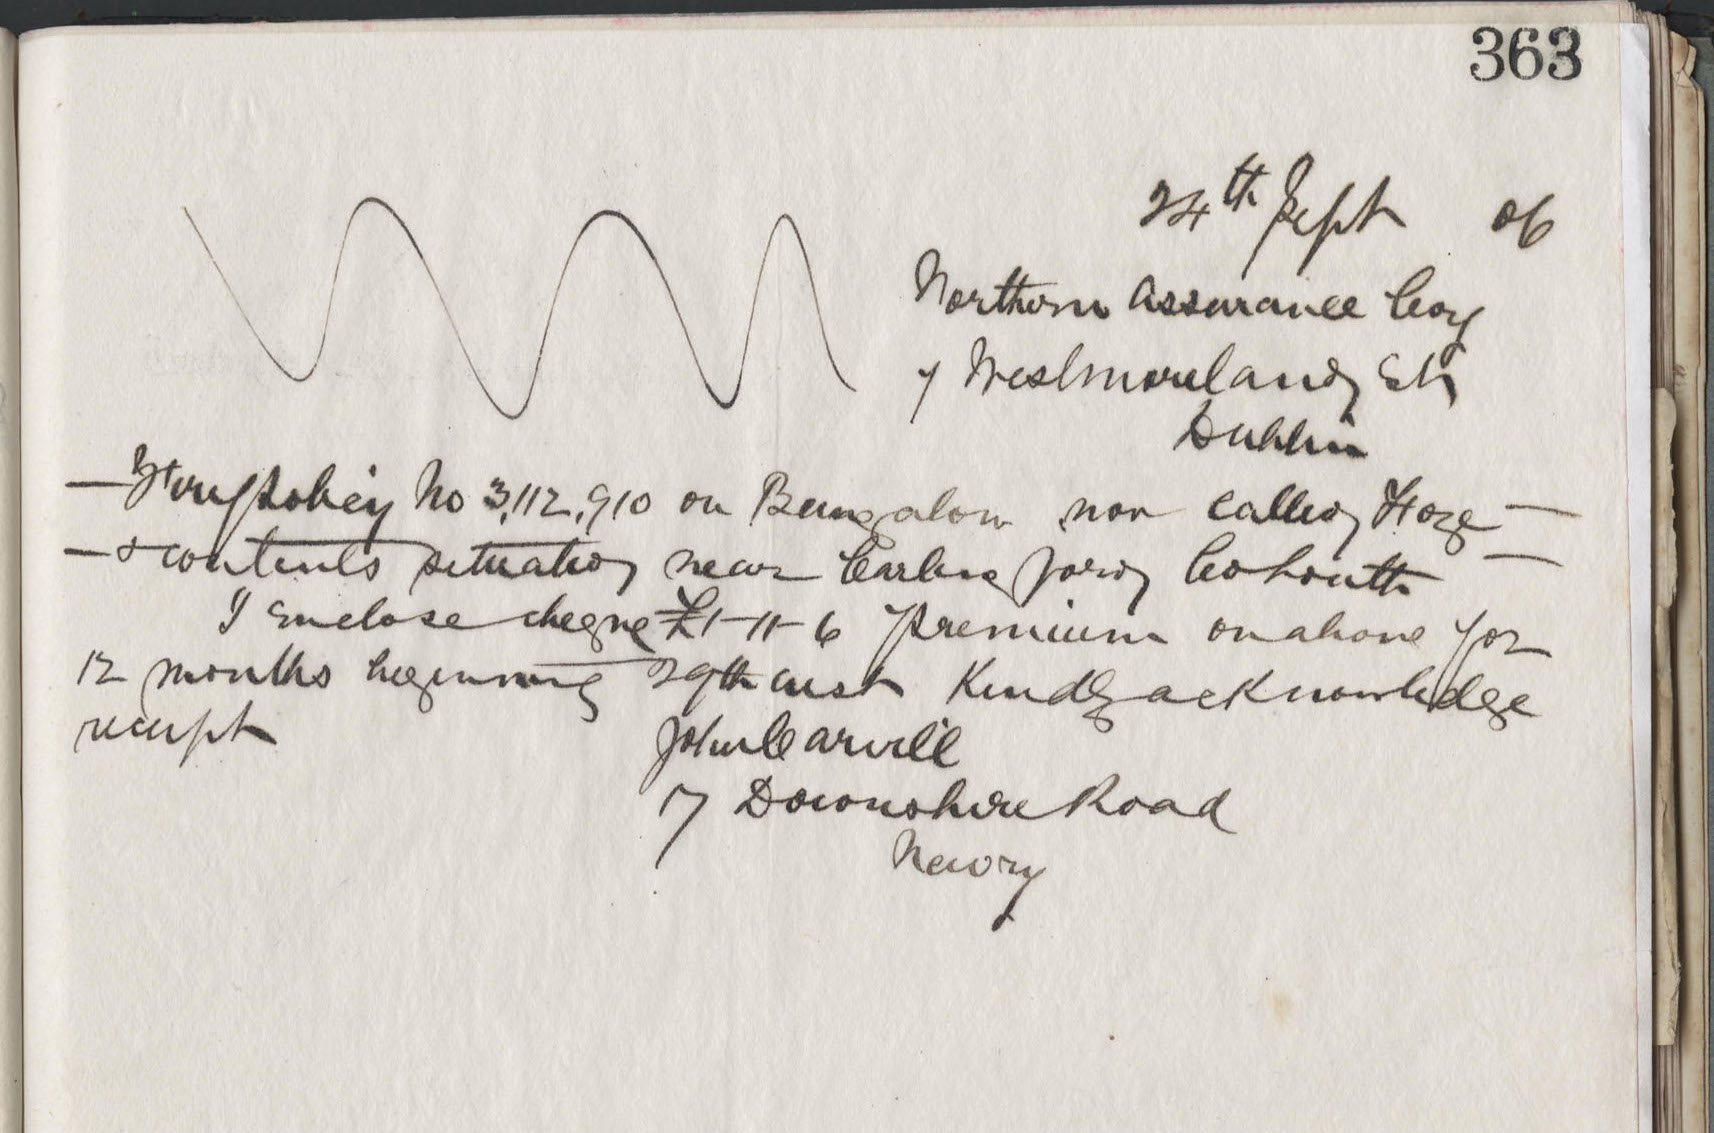 363
24th Sept 06
Northern Assurance Coy
7 Westmoreland St
Dublin
- Fire Policy No 3,112,910 on Bungalow now called
- & contents situated near Carlingford Co Louth -
I enclose cheque £1-11-6 premium on above for
12 months beginning 29th inst Kindly acknowledge
receipt
John Carvill
17 Devonshire Road
Newry